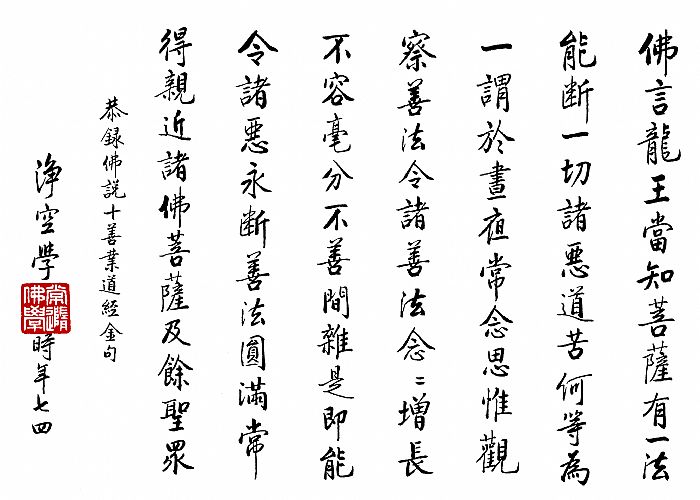 佛言龍王當知菩薩有一法
能断一切諸惡道苦何等為
一謂於晝夜常念思惟觀
察善法令諸善法念〻增長
不容毫分不善間雜是即能
令諸惡永断善法圓滿常
得親近諸佛菩薩及餘聖眾
恭録佛說十善業道經金句
淨空學時年七四
常隨佛學